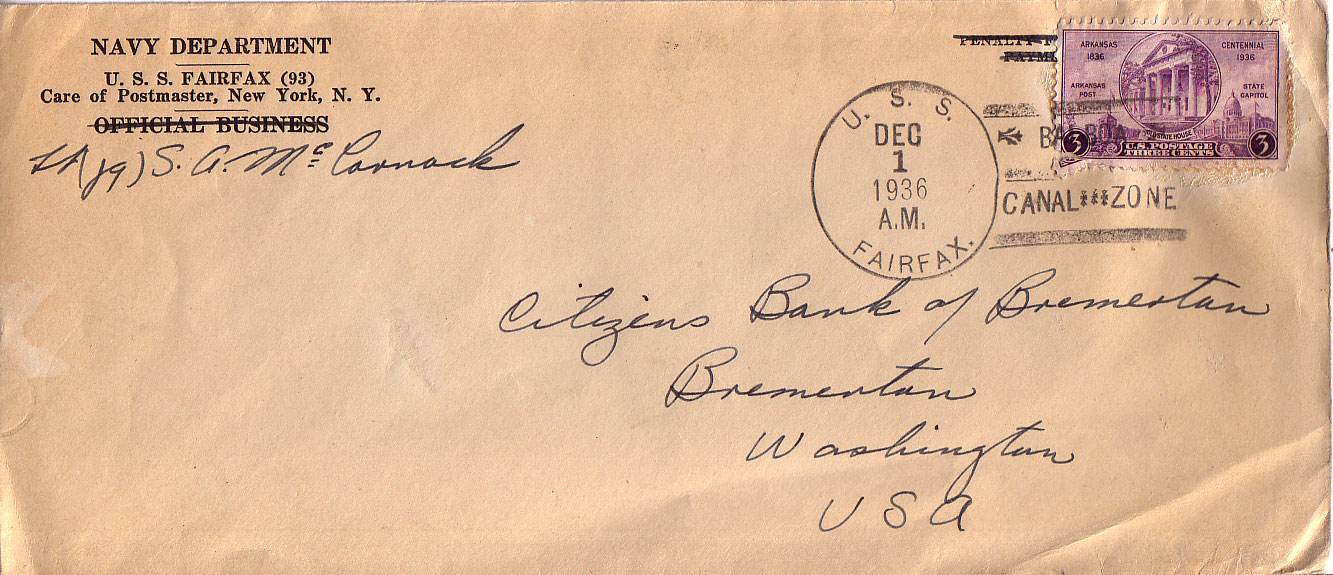 NAVY DEPARTMENT
U. S. S. FAIRFAX (93)
Care of Postmaster, New York, N. Y.
OFFICIAL BUSINESS
Lt (jg) S. A. McCornock
PENALTY F
PAYM
ARKANSAS
1836
CENTENNIAL
1936
ARKANSAS
POST
STATE
CAPITOL
OLD STATE HOUSE
3
U.S. POSTAGE
THREE CENTS
3
U. S. S.
DEC
1
1936
A.M.
FAIRFAX.
BALBOA
CANAL***ZONE
Citizens Bank of Bremerton
Bremerton
Washington
USA